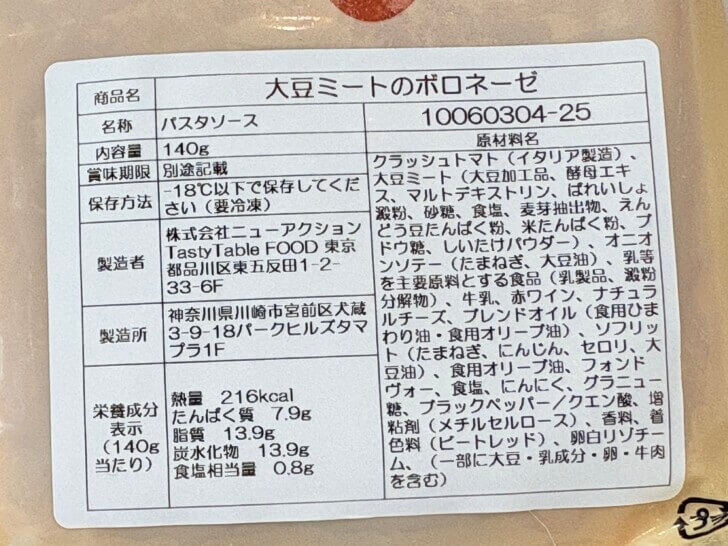 商品名 大豆ミートのボロネーゼ
名称 パスタソース
10060304-25
内容量 140g
賞味期限 別途記載
保存方法 -18℃以下で保存してくだ
さい（要冷凍）
製造者 株式会社ニューアクション
TastyTable FOOD 東京
都品川区東五反田1-2-
33-6F
製造所 神奈川県川崎市宮前区犬蔵
3-9-18パークヒルズタマ
プラ1F
栄養成分
表示
（140g
当たり）
熱量 216kcal
たんぱく質 7.9g
脂質 13.9g
炭水化物 13.9g
食塩相当量 0.8g
原材料名
クラッシュトマト（イタリア製造）、
大豆ミート（大豆加工品、酵母エキ
ス、マルトデキストリン、ばれいしょ
澱粉、砂糖、食塩、麦芽抽出物、えん
どう豆たんぱく粉、米たんぱく粉、ブ
ドウ糖、しいたけパウダー）、オニオ
ンソテー（たまねぎ、大豆油）、乳等
を主要原料とする食品（乳製品、澱粉
分解物）、牛乳、赤ワイン、ナチュラ
ルチーズ、ブレンドオイル（食用ひま
わり油・食用オリーブ油）、ソフリッ
ト（たまねぎ、にんじん、セロリ、大
豆油）、食用オリーブ油、フォンド
ヴォー、食塩、にんにく、グラニュー
糖、ブラックペッパー／クエン酸、増
粘剤（メチルセルロース）、香料、着
色料（ビートレッド）、卵白リゾチー
ム、（一部に大豆・乳成分・卵・牛肉
を含む）